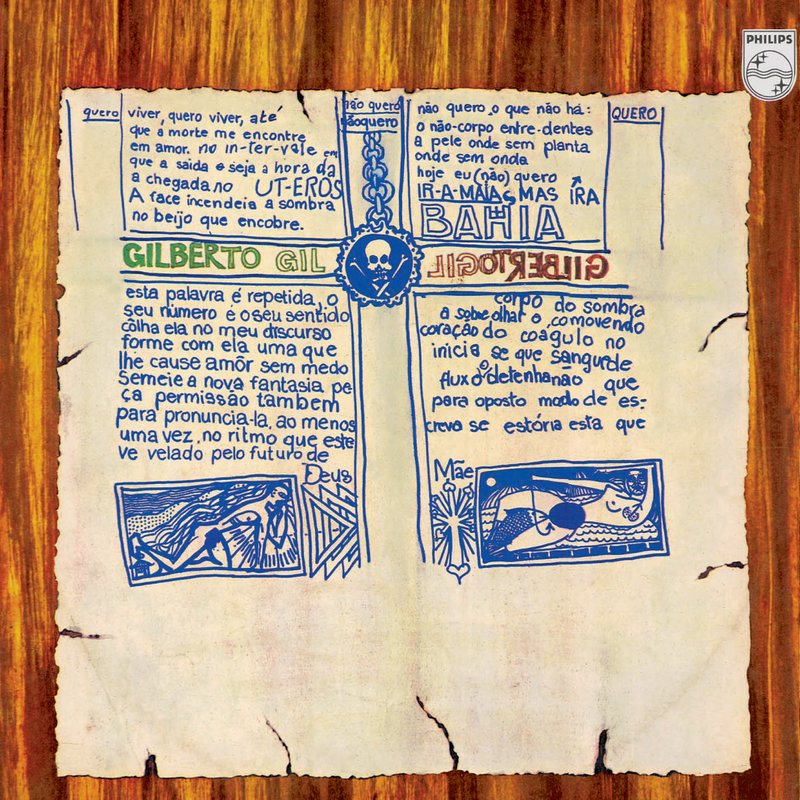 PHILIPS
quero
viver, quero viver, até
que a morte me encontre
em amor. no in-ter-vale em
que a saida e seja a hora da
a chegada no UT-EROS
A face incendeia a sombra
no beijo que encobre.
não quero
nãoquero
não quero, o que não há:
o não-corpo entre-dentes
a pele onde sem planta
onde sem onda
hoje eu (não) quero
IR-A-MAIAS MAS IRA
BAHIA
QUERO
GILBERTO GIL
GILBERTO GIL
esta palavra é repetida, o
seu número é o seu sentido
côlha ela no meu discurso
forme com ela uma que
lhe cause amôr sem medo
Semeie a nova fantasia pe
ça permissão também
para pronuncia-la, ao menos
uma vez, no ritmo que este
ve velado pelo futuro de
Deus
corpo do sombra
a sobre olhar o, comovendo
coração do coagulo no
inicia se que sangue de
fluxo o detenha não que
para oposto modo de es-
creva se estória esta que
Mãe